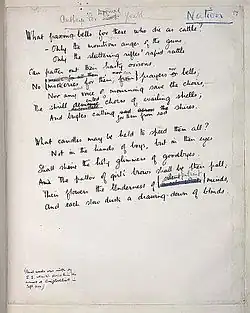 Anthem for Dead Youth
Nation
What passing-bells for these who die as cattle?
- Only the monstrous anger of the guns.
Only the stuttering rifles' rapid rattle
Can patter out their hasty orisons.
No mockeries for them; no prayers nor bells,
Nor any voice of mourning save the choirs,
The shrill demented choirs of wailing shells;
And bugles calling for them from sad shires.
What candles may be held to speed them all?
Not in the hands of boys, but in their eyes
Shall shine the holy glimmers of goodbyes.
And The pallor of girls' brows shall be their pall;
Their flowers the tenderness of silent minds,
And each slow dusk a drawing-down of blinds.